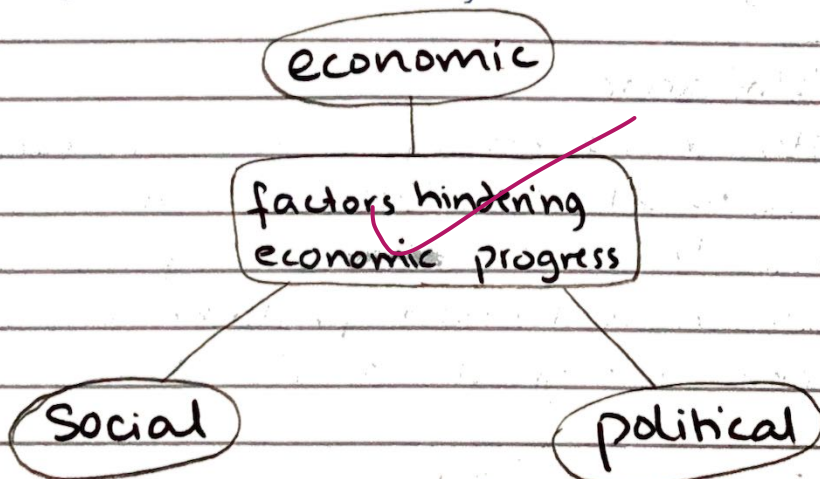 economic
factors hindering
economic progress
Social
political